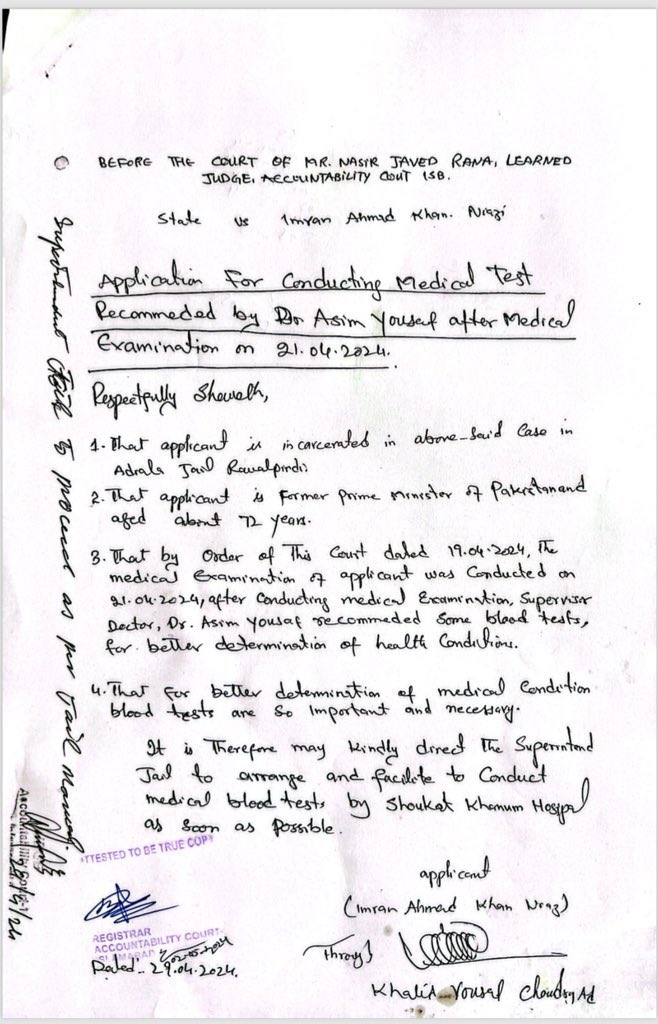 BEFORE THE COURT OF MR. NASIR JAVED RANA, LEARNED
JUDGE, ACCOUNTABILITY COUT ISB.
State vs Imran Ahmad Khan. Niazi
Application For Conducting Medical Test
Recommeded by Dr Asim Yousaf after Medical
Examination on 21.04.2024.
Respectfully Sheweth,
1. That applicant is incarcerated in above-said Case in
Adiala Jail Rawalpindi
2. That applicant is Former Prime Minister of Pakistan and
aged about 72 years.
3. That by Order of This Court dated 19.04.2024, The
medical Examination of applicant was Conducted on
21.04.2024, after Conducting medical Examination, Supervisor
Doctor, Dr. Asim Yousaf recommeded Some blood tests,
for better determination of health Conditions.
4. That for better determination of medical Condition
blood tests are so Important and necessary.
It is Therefore may kindly direct The Superintend
Jail to arrange and facilite to Conduct
medical blood tests by Shoukat Khanum Hospital
as soon as possible.
applicant
(Imran Ahmad Khan Niazi)
Through
Khalid Yousaf Chaudry Ad
Superintendent Jail to proceed as per Jail Manual.
28/4/24
ATTESTED TO BE TRUE COPY
REGISTRAR
ACCOUNTABILITY COURT-
ISLAMABAD
Dated:. 29.04.2024.